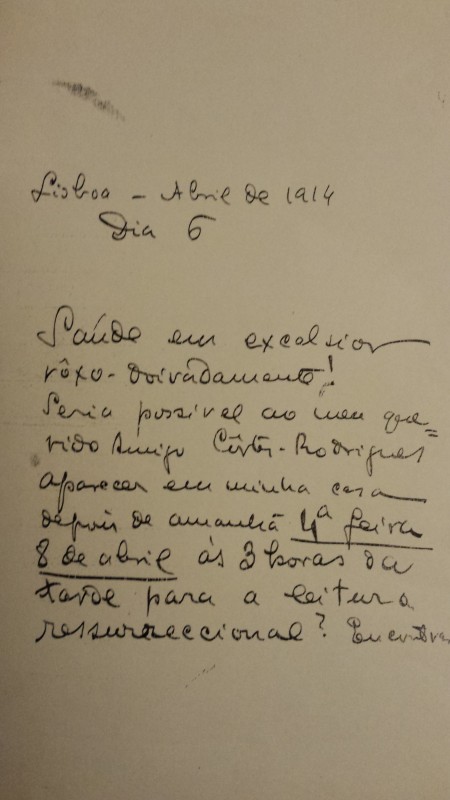 Lisboa – Abril de 1914
Dia 6
Saúde em excelsior
rôxo-doiradamente!
Seria possivel ao meu que=
rido Amigo Côrtes-Rodrigues
aparecer em minha casa
depois de amanhã 4ª feira
8 de abril ás 3 horas da
tarde para a leitura
ressurreccional?